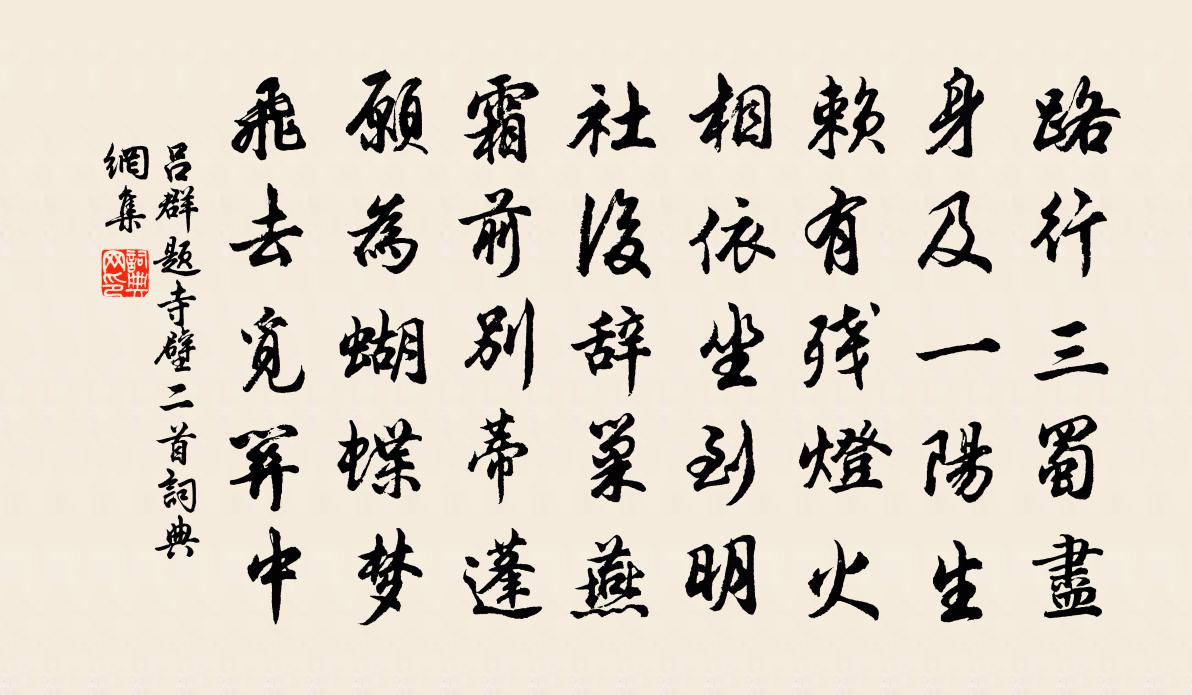 路行三蜀盡
身及一陽生
赖有残燈火
相依坐到明
社後辞巢燕
霜前别蒂蓬
願為蝴蝶梦
飛去覓関中
吕群題寺壁二首詞典
網集
詞典网印